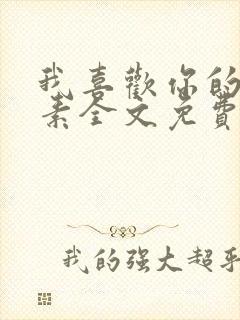 我喜歡你的
素全文免費
我的强大超乎